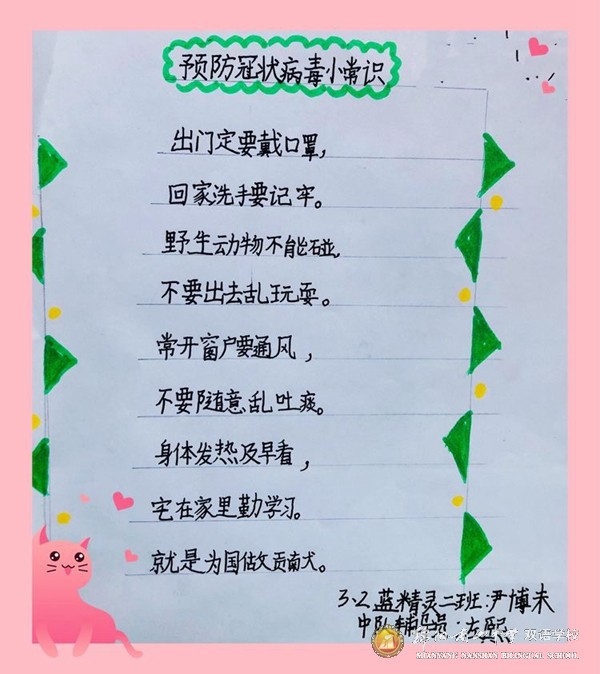 预防冠状病毒小常识
出门定要戴口罩,
回家洗手要记牢。
野生动物不能碰,
不要出去乱玩耍。
常开窗户要通风,
不要随意乱吐痰。
身体发热及早看,
宅在家里勤学习。
就是为国做文贡献犬。
3.2蓝精灵二班:尹博未
中队辅导员:左熙
双语学校
MIANYANG NANSHAN BILINGUAL SCHOOL